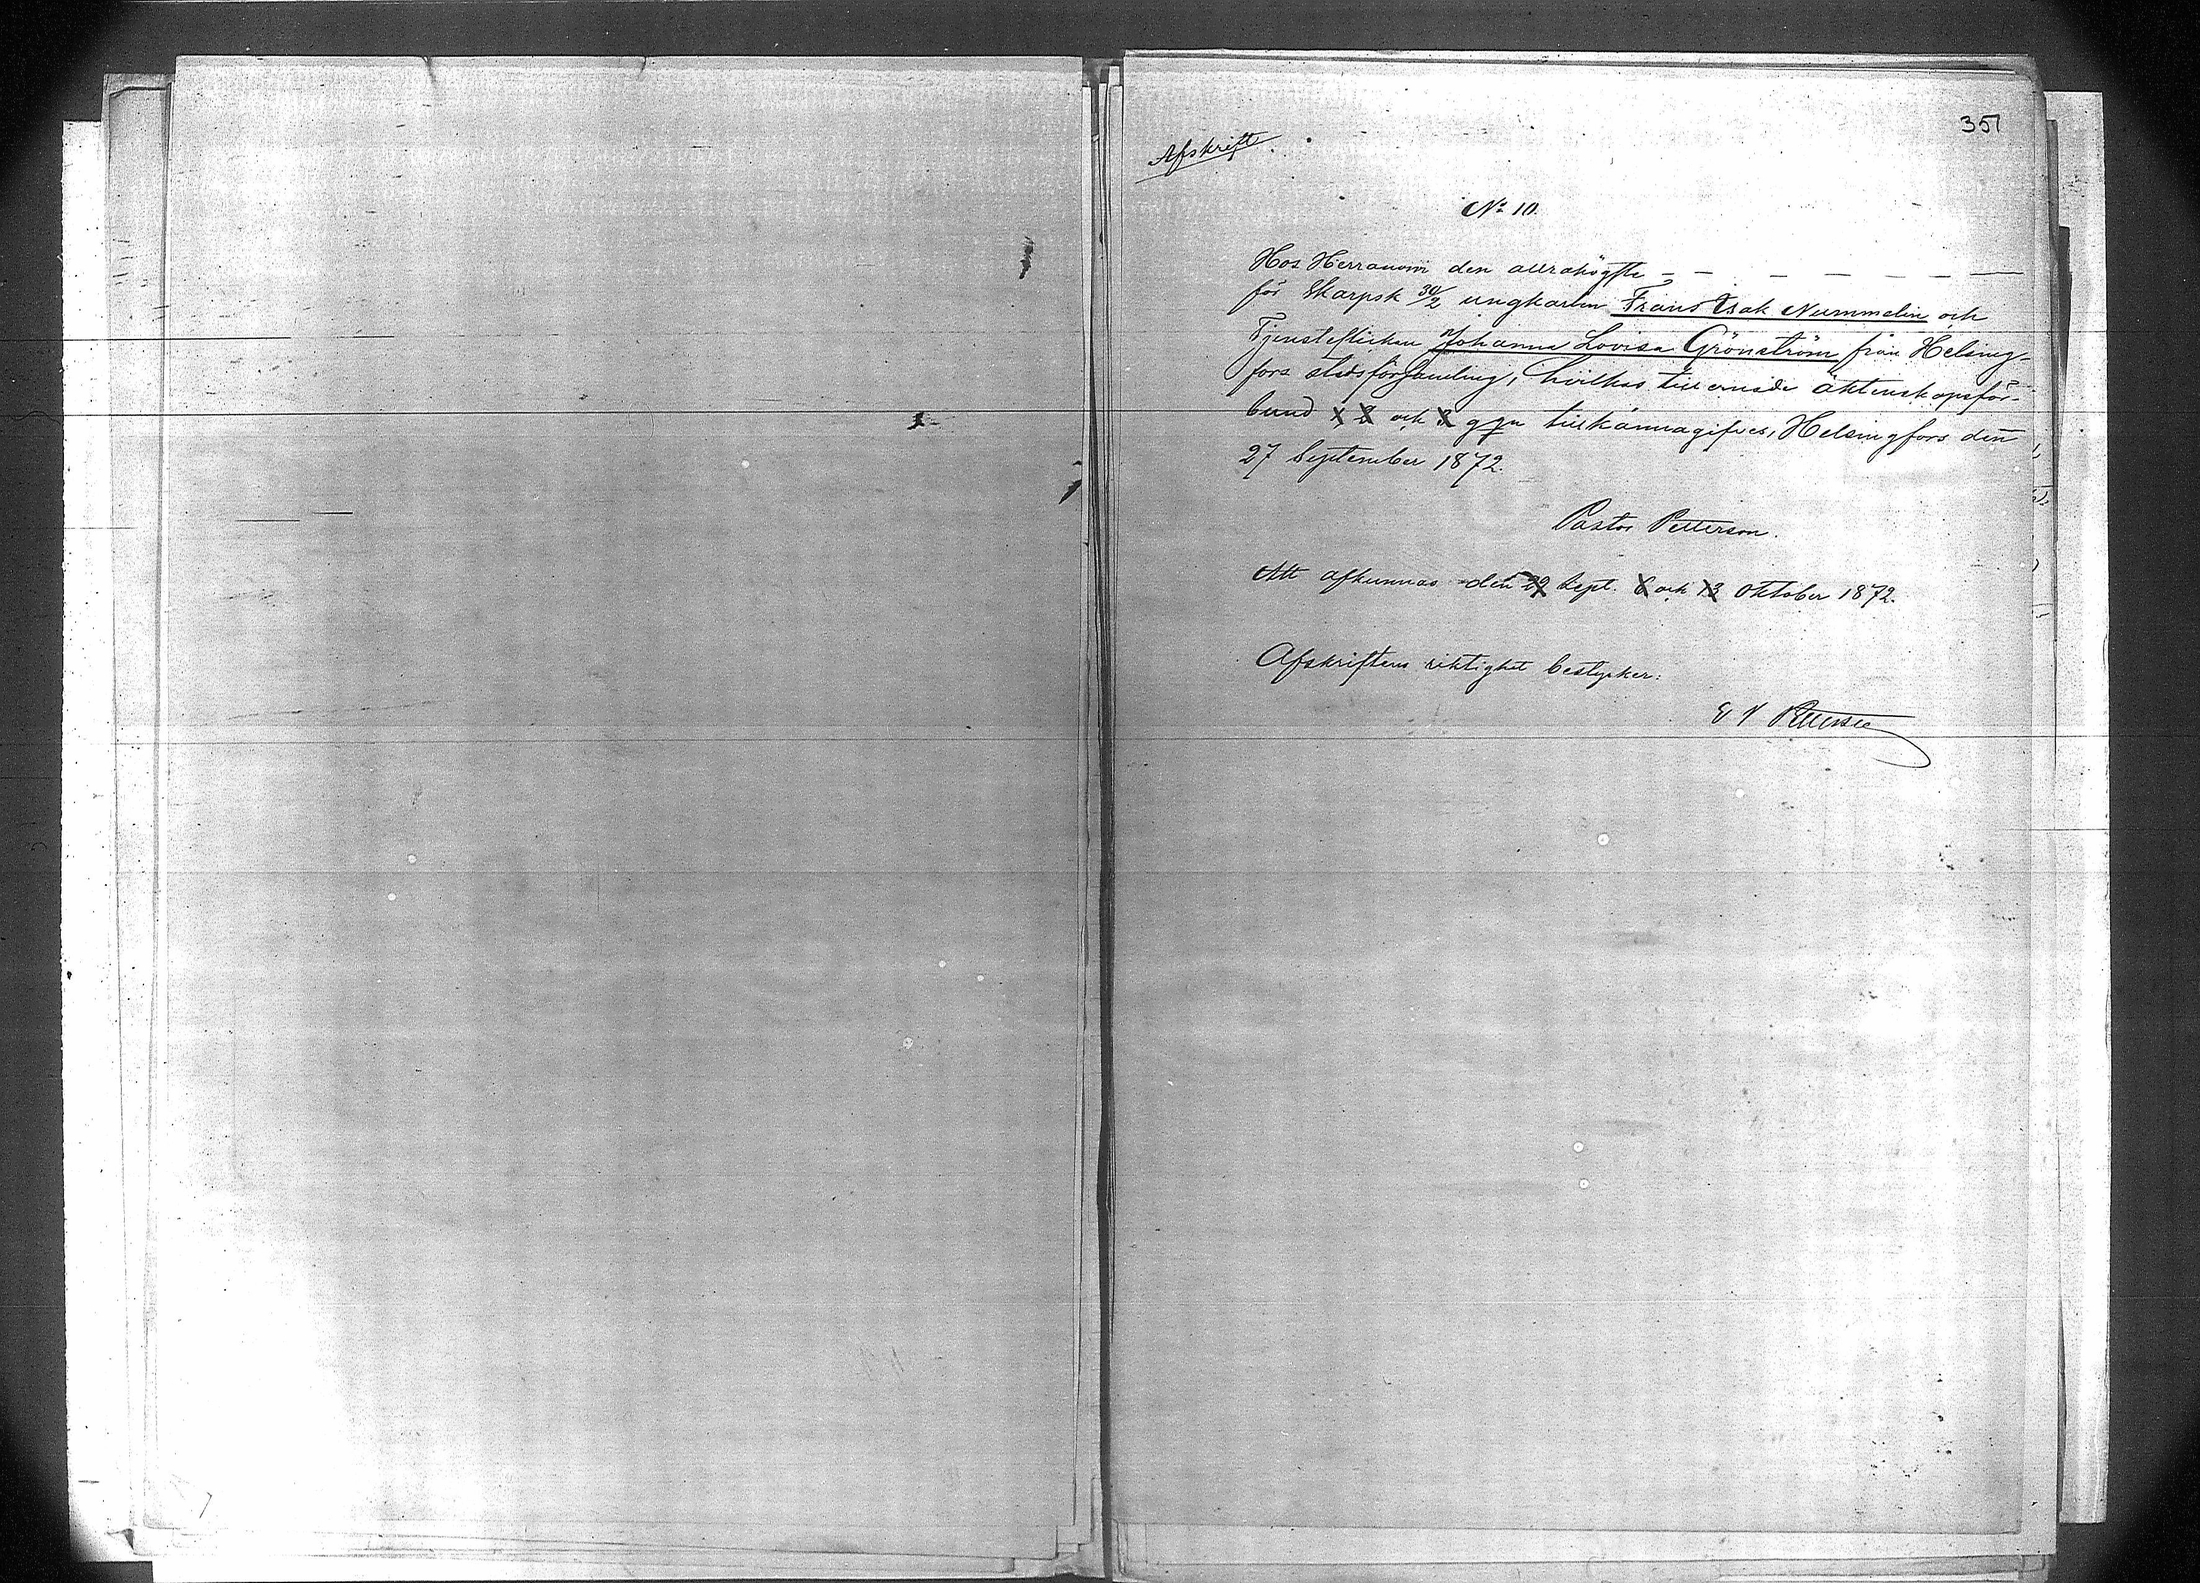 351
Afskrift.
No 10.
Hos Herranom den allrahögste — — — — — — —
för Skarpsk 30/2 ungkarlen Frans Isak Nummelin och
Tjensteflickan Johanna Lovisa Grönström från Helsing-
fors stadsförsamling, hvilkas tillernade äktenskapsför-
bund 1, 2 och 3 ggn tillkännagifves, Helsingfors den
27 September 1872.
Pastor Petterson.
Att afkunnas den 29 Sept. 6 och 13 Oktober 1872.
Afskriftens riktighet bestyrker: